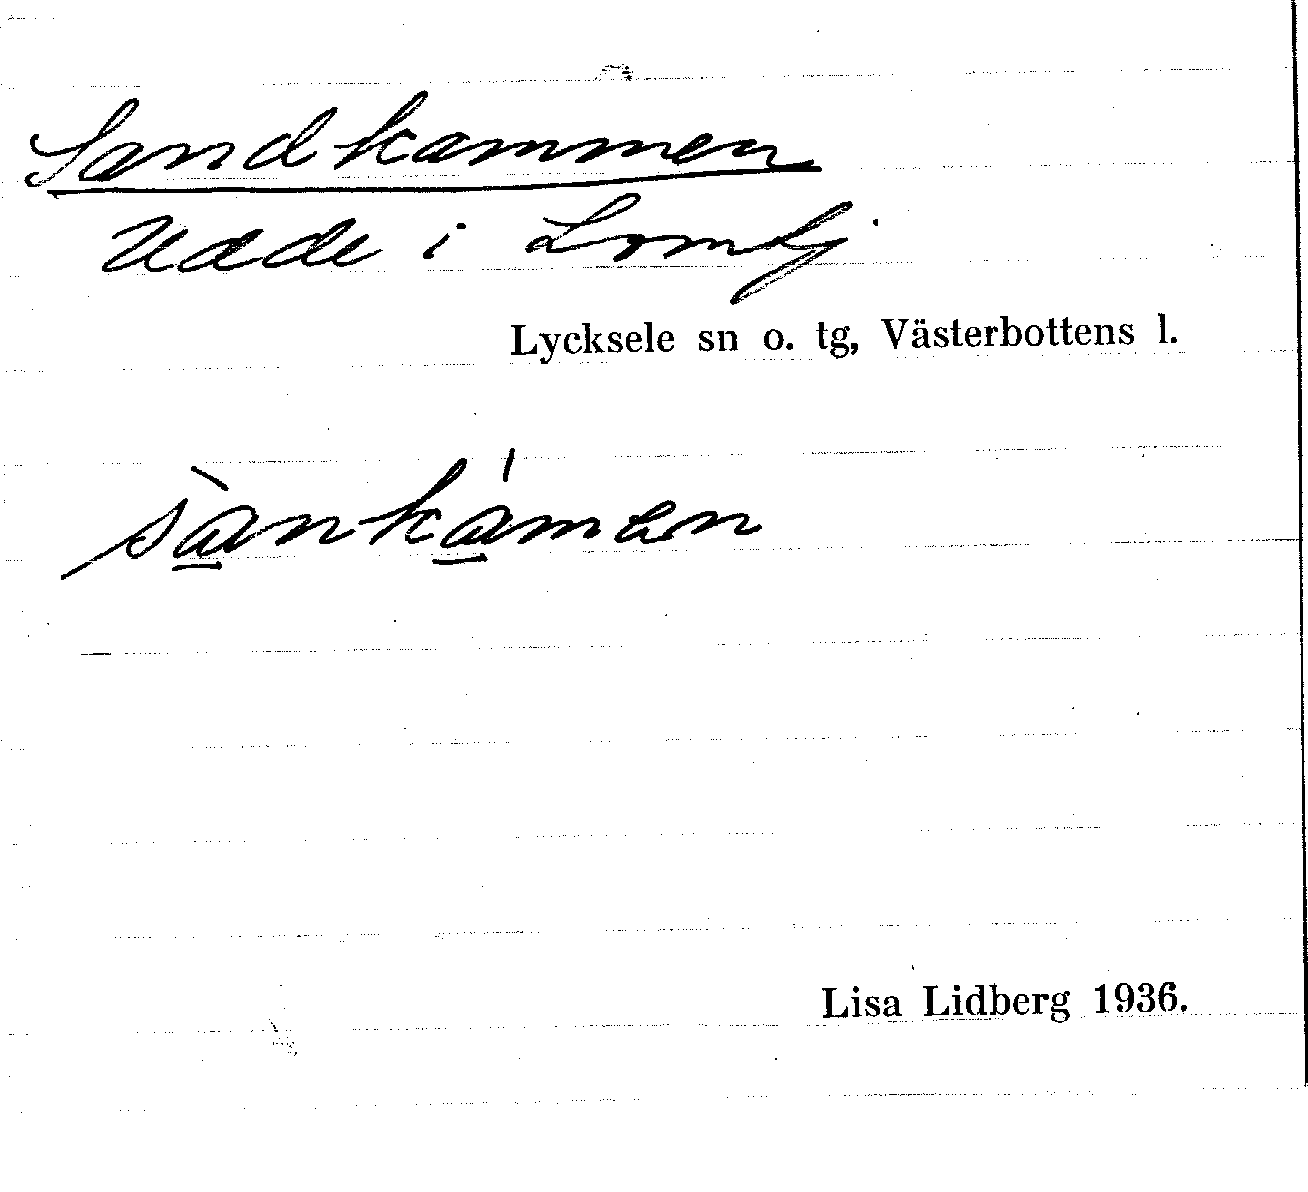 Sandkammen
Udde i Lomsj.
Lycksele sn o. tg, Västerbottens l.
sànkámen
Lisa Lidberg 1936.